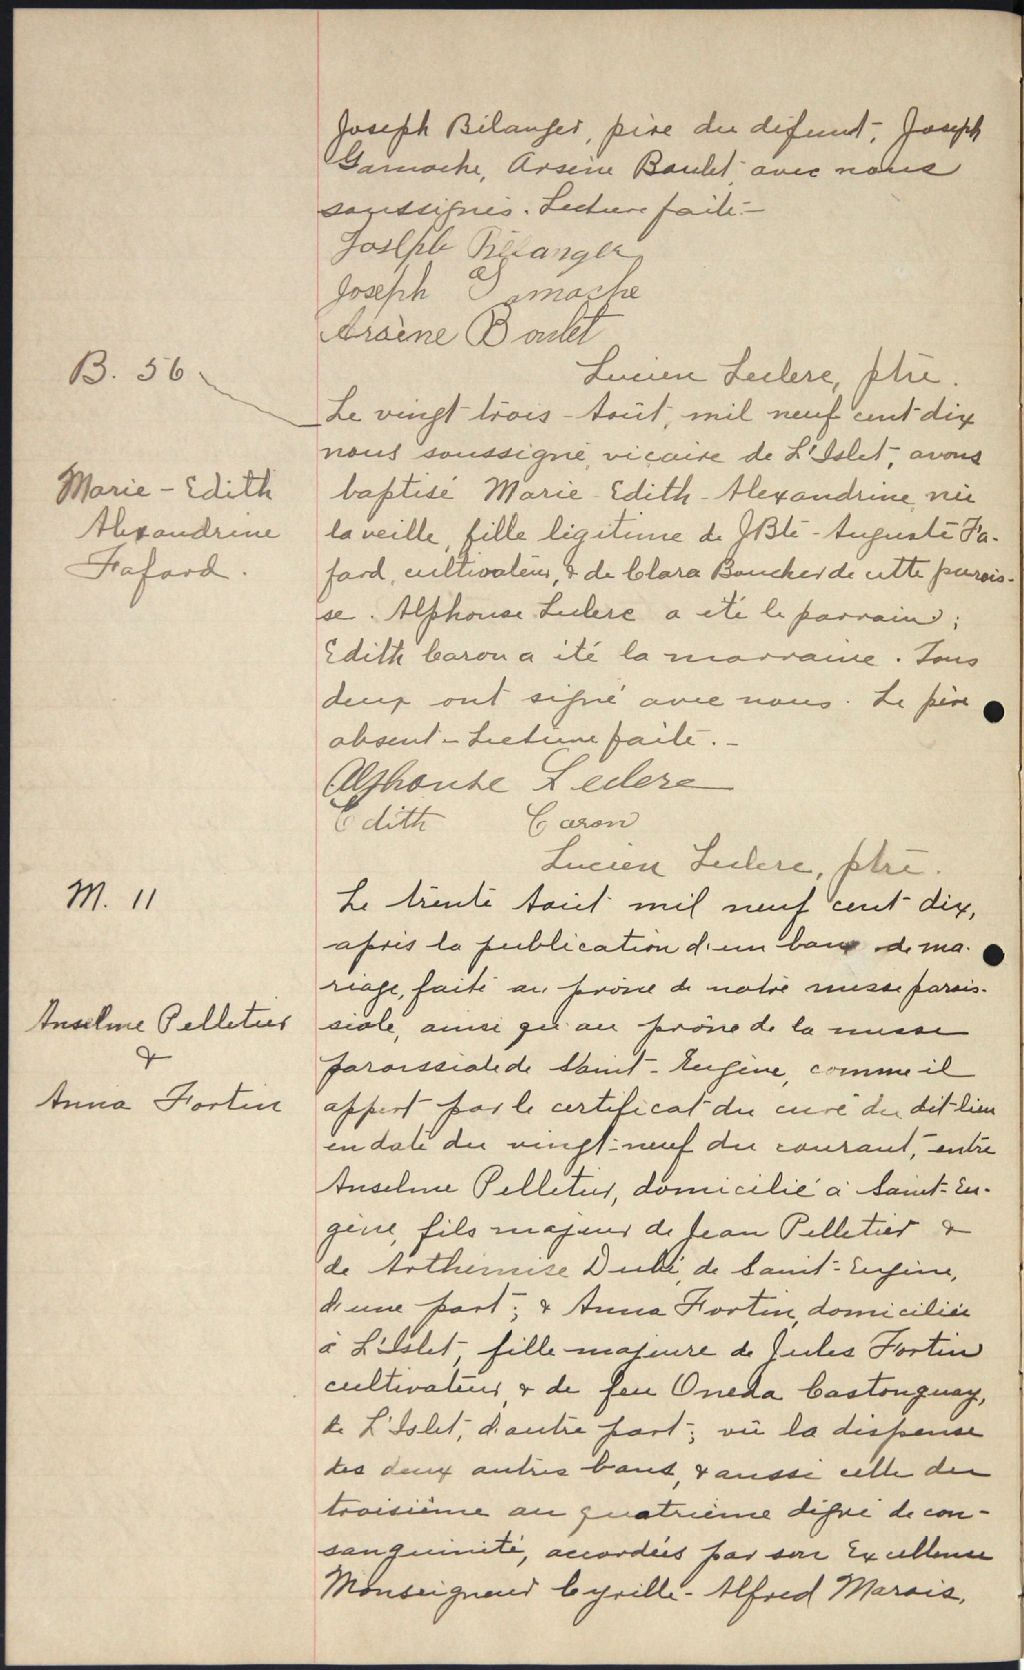 Joseph Bélanger, père du défunt, Joseph
Gamache, Arsène Boulet avec nous
soussignés. Lecture faite.-
Joseph Bélanger
Joseph Gamache
Arsène Boulet
Lucien Leclerc, ptre.
B. 56
Le vingt trois Août, mil neuf cent dix
nous soussigné, vicaire de L'Islet, avons
Marie-Edith
Alexandrine
Fafard.
baptisé Marie-Edith-Alexandrine, née
la veille, fille légitime de JBte-Auguste Fa-
fard, cultivateur, & de Clara Boucher de cette parois-
se. Alphonse Leclerc a été le parrain;
Edith Caron a été la marraine. Tous
deux ont signé avec nous. Le père
absent - Lecture faite.-
Alphonse Leclerc
Edith Caron
Lucien Leclerc, ptre.
M. 11
Le trente Août mil neuf cent dix,
après la publication d'un ban de ma-
riage, faite au prône de notre messe parois-
Anselme Pelletier
&
Anna Fortin
siale, ainsi qu'au prône de la messe
paroissiale de Saint-Eugène, comme il
appert par le certificat du curé du dit lieu
en date du vingt-neuf du courant, entre
Anselme Pelletier, domicilié à Saint-Eu-
gène, fils majeur de Jean Pelletier &
de Arthémise Dubé, de Saint-Eugène,
d'une part; & Anna Fortin, domiciliée
à L'Islet, fille majeure de Jules Fortin
cultivateur, & de feu Oneda Castonguay,
de L'Islet, d'autre part; vu la dispense
des deux autres bans, & aussi celle du
troisième au quatrième degré de con-
sanguinité, accordées par son Excellence
Monseigneur Cyrille-Alfred Marois,